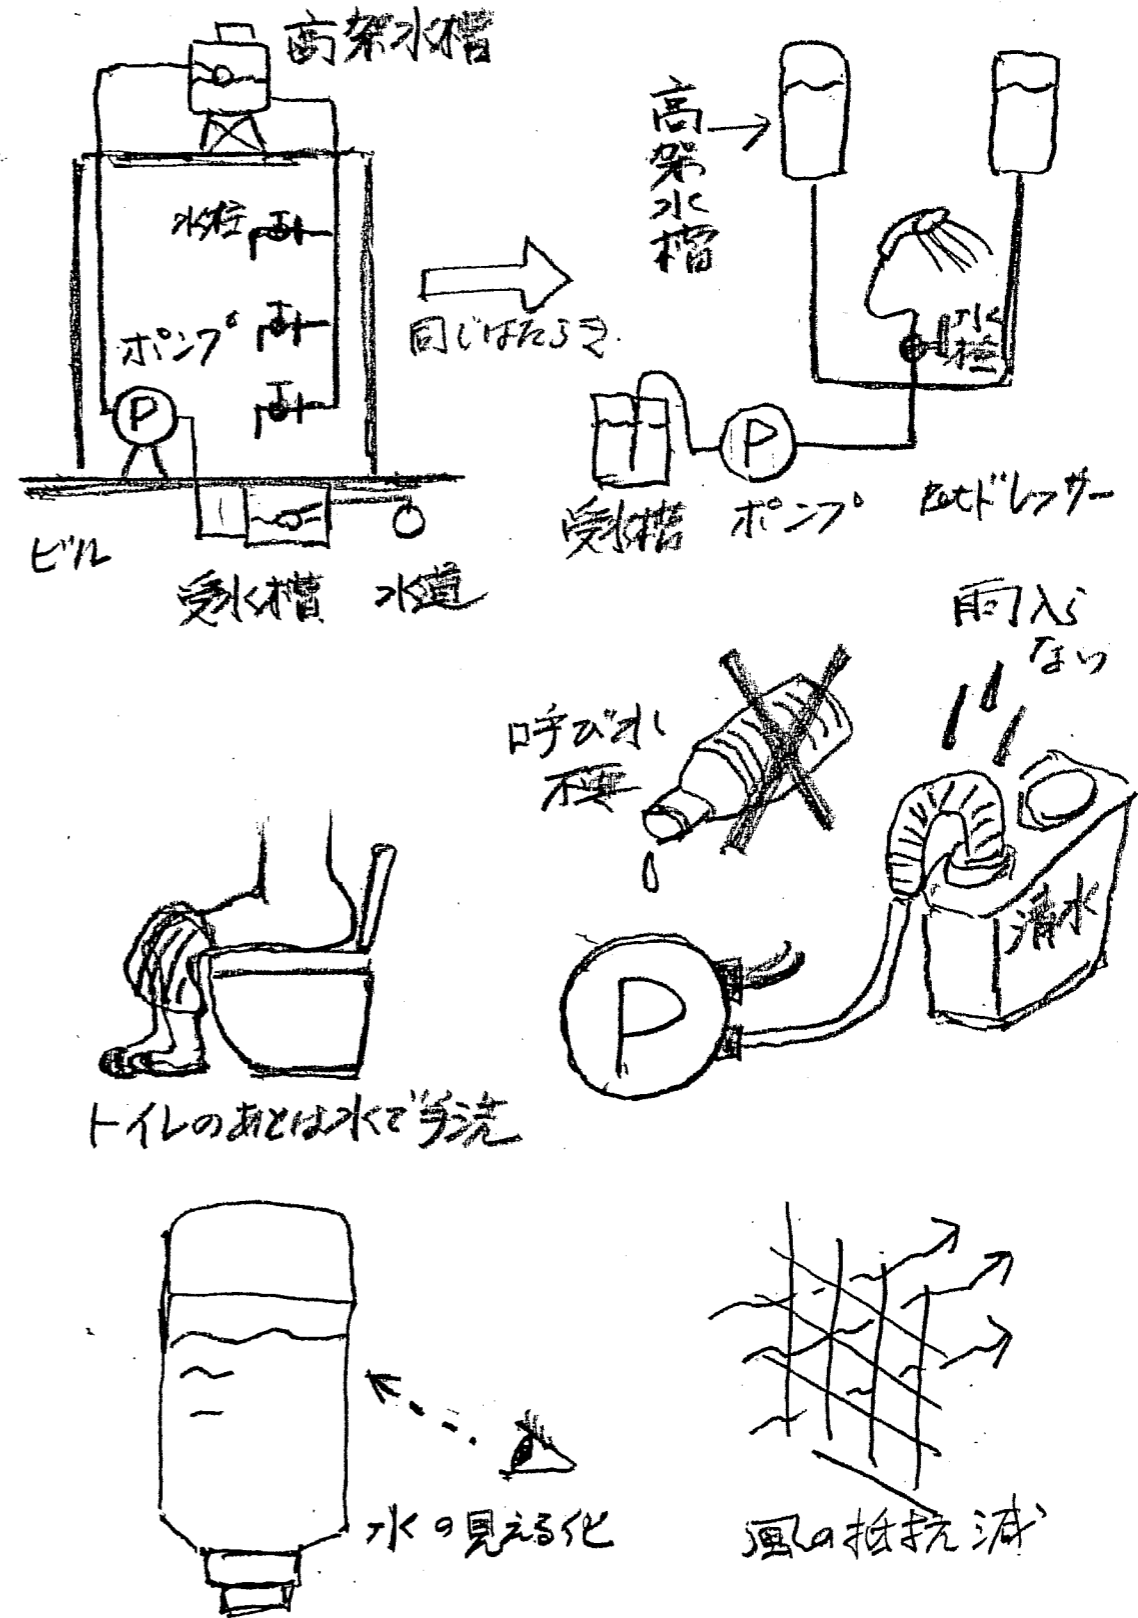 高架水槽
水栓
ポンプ
P
ビル
受水槽
水道
同じはたらき.
高架水槽
水栓
P
受水槽
ポンプ
ドレッサー
雨入ら
ない
呼び水
不要
清水
P
トイレのあとは水で手洗
水の見える化
風の抵抗減